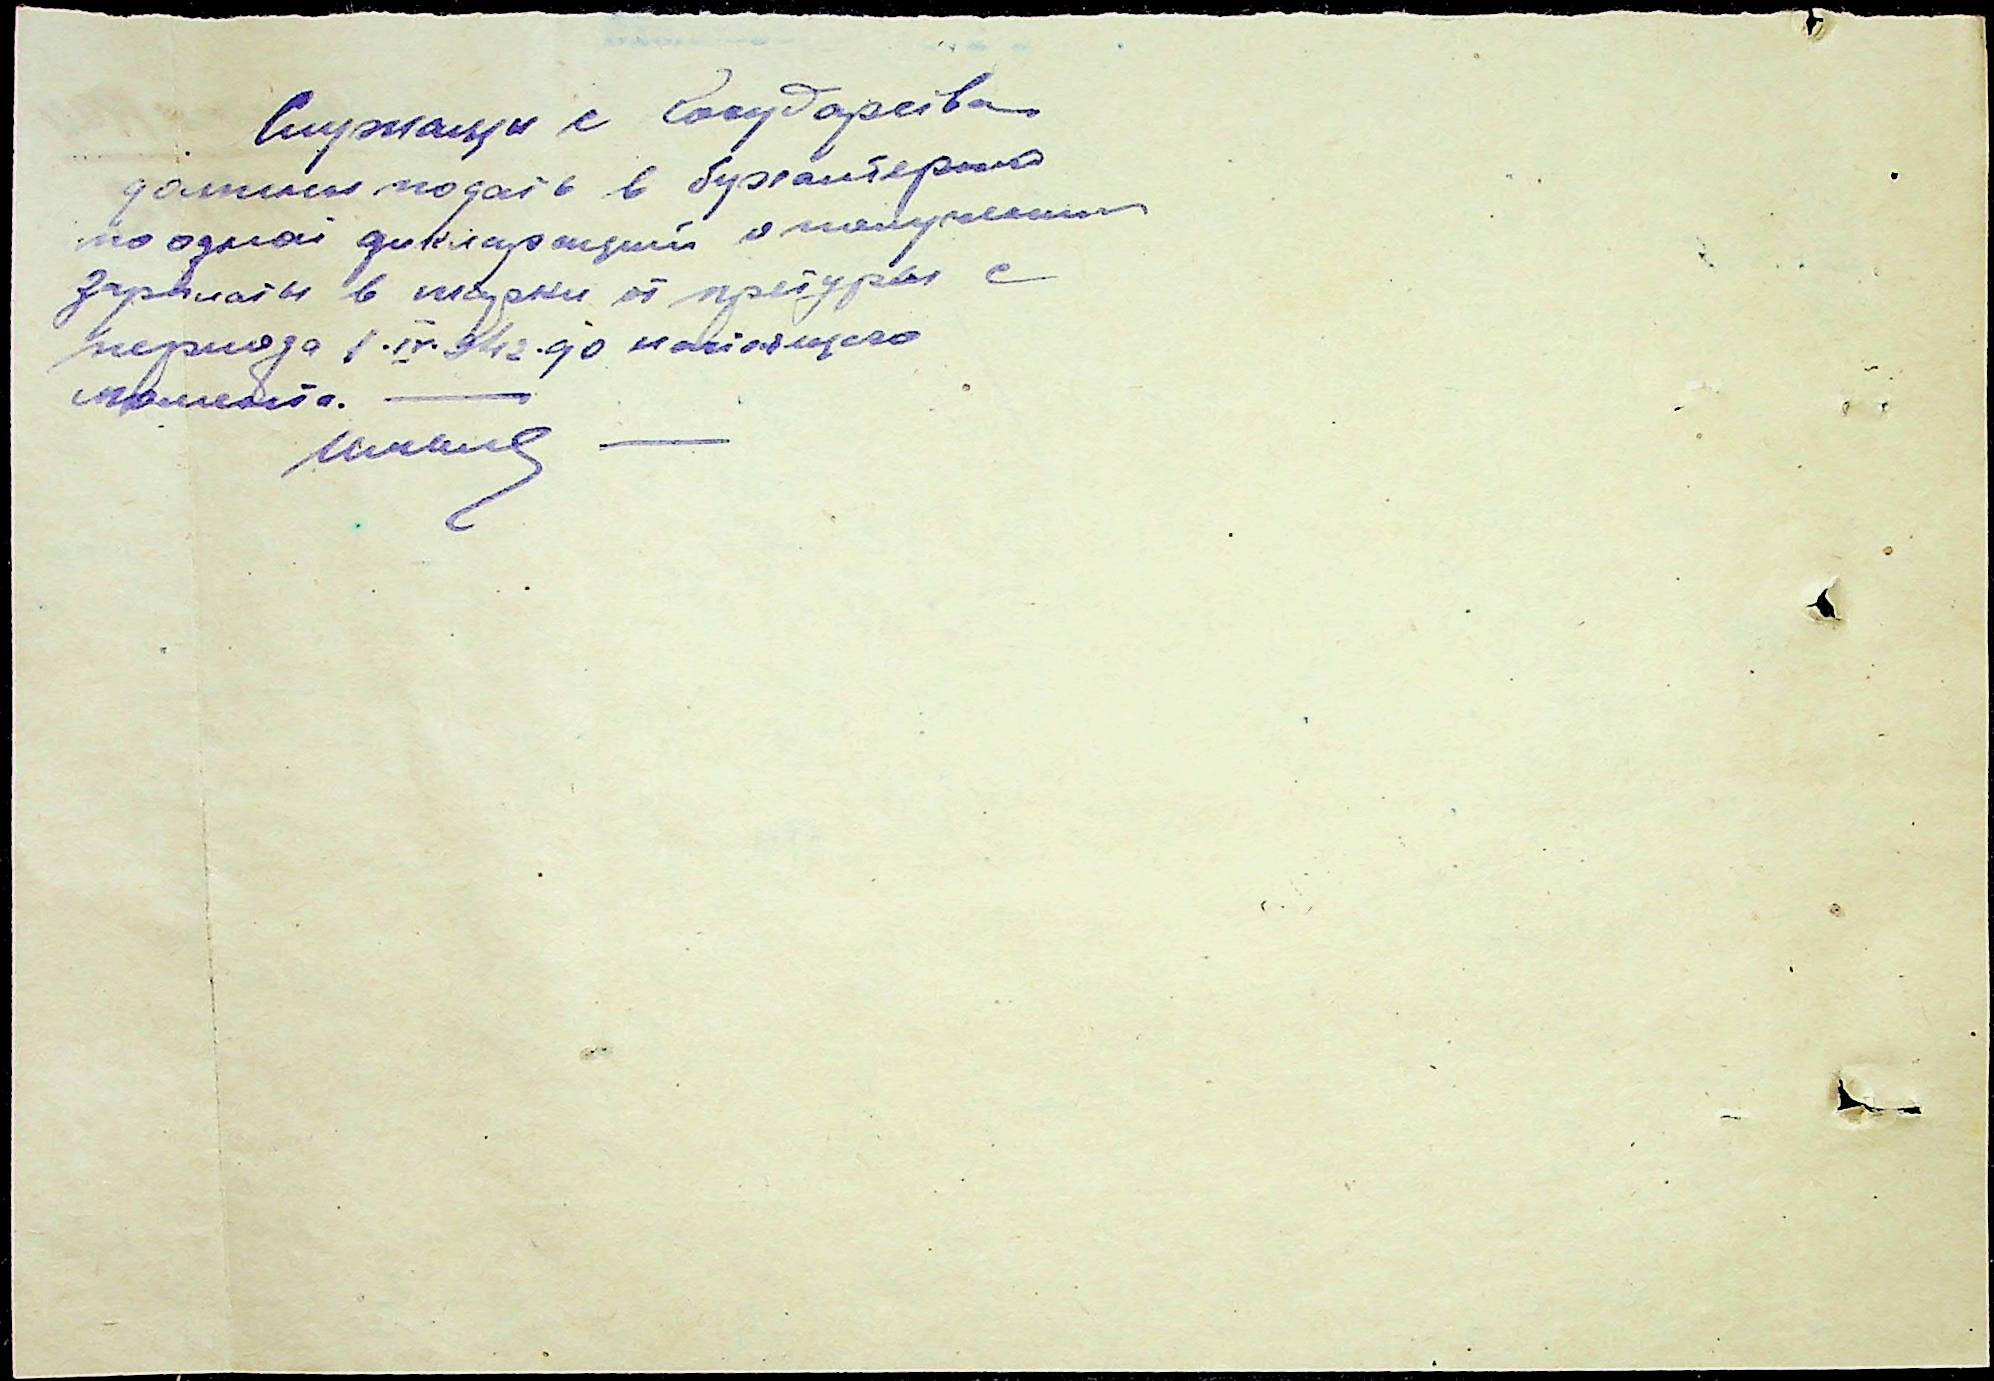 Служащи с Государства
должны подать в бухалтерию
по одной дикларации о получении
зарплаты в марки от претуры с
периода 1.IV.942 до настоящего
момента. —